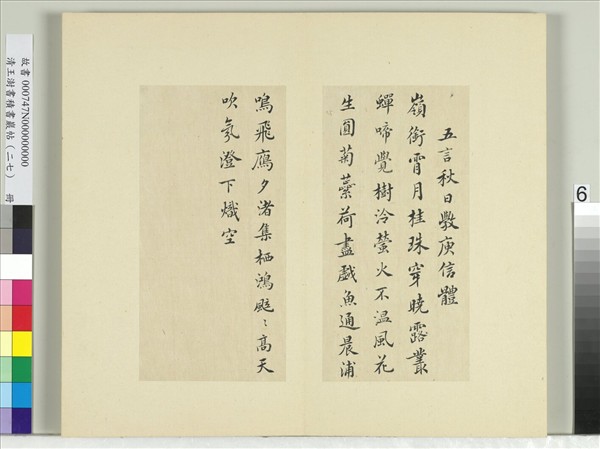 五言秋日斆庾信體
嶺銜霄月桂珠穿曉露叢
蟬啼覺樹冷螢火不溫風花
生圓菊蘂荷盡戲魚通晨浦
鳴飛鴈夕渚集栖鴻颯〻高天
吹氛澄下熾空
故書 000747N000000000
清王澍書積書巖帖(二七) 冊
6